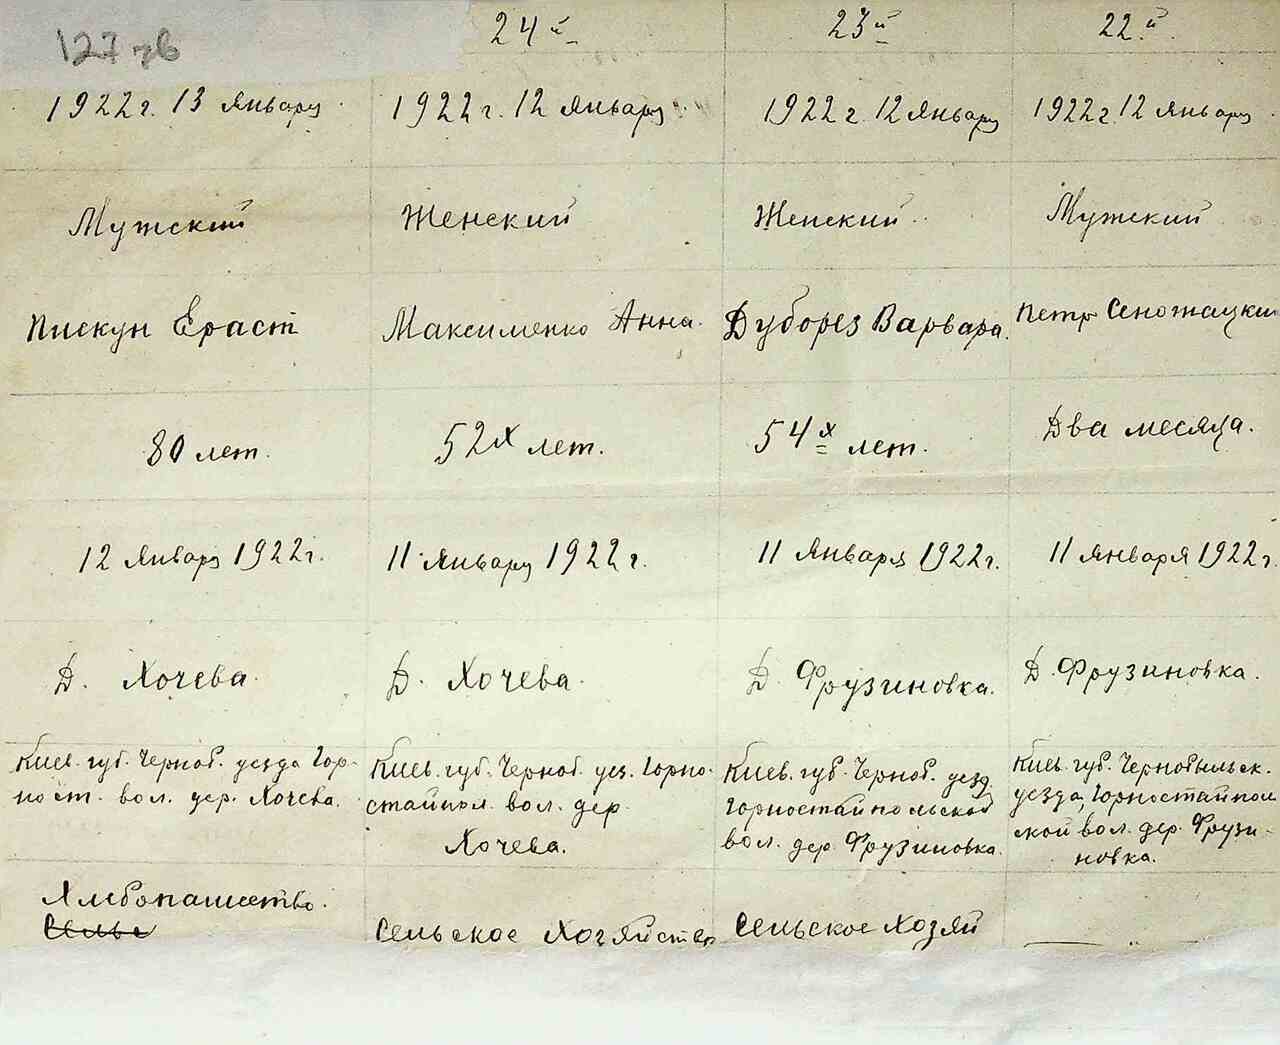 127 зв
24й 23й 22й
1922 г. 13 Январу 1922 г. 12 Январу 1922 г. 12 Январу 1922 г. 12 Январу
Мужский Женский Женский Мужский
Пискун Ераст Максименко Анна. Дуборез Варвара. Петр Сеножацкий
80 лет. 52х лет. 54х лет. Два месяца.
12 Январу 1922 г. 11 Январу 1922 г. 11 Января 1922 г. 11 Января 1922 г.
Д. Хочева. Д. Хочева. Д. Фрузиновка. Д. Фрузиновка.
Киев. губ. Черноб. уезда Гор-
ност. вол. дер. Хочева.
Киев. губ. Черноб. уез. Горно-
стайпол. вол. дер
Хочева.
Киев. губ. Черноб. уезд
Горностайпольской
вол. дер. Фрузиновка.
Киев. губ. Чернобыльск.
уезда, Горностайполь
ской вол. дер. Фрузи-
новка.
Хлебопашество.
Сельс
Сельское Хозяйство
Сельское Хозяй